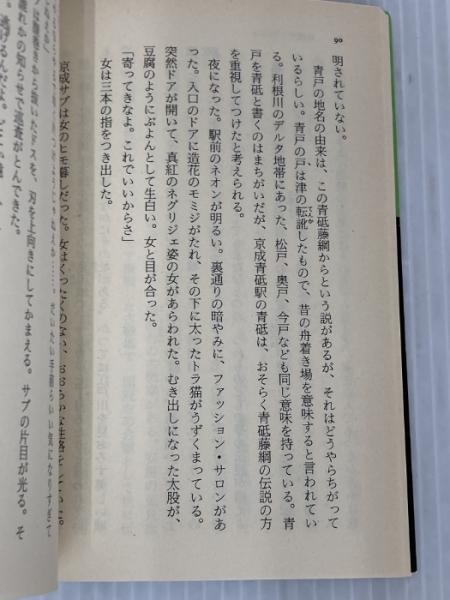 90
明されていない。
青戸の地名の由来は、この青砥藤綱からという説があるが、それはどうやらちがって
いるらしい。青戸の戸は津の転訛したもので、昔の舟着き場を意味すると言われてい
る。利根川のデルタ地帯にあった、松戸、奥戸、今戸なども同じ意味を持っている。青
戸を青砥と書くのはまちがいだが、京成青砥駅の青砥は、おそらく青砥藤綱の伝説の方
を重視してつけたと考えられる。
夜になった。駅前のネオンが明るい。裏通りの暗やみに、ファッション・サロンがあ
った。入口のドアに造花のモミジがたれ、その下に太ったトラ猫がうずくまっている。
突然ドアが開いて、真紅のネグリジェ姿の女があらわれた。むき出しになった太股が、
豆腐のようにぷよんとして生白い。女と目が合った。
「寄ってきなよ。これでいいからさ」
女は三本の指をつき出した。
京成サブは女のヒモ暮しだった。女はくったくのない、おおらかな性格をしていた。
だいたい手前らいい気になりすぎて
腹巻きから抜いたドスを、刃を上向きにしてかまえる。サブの片目が光る。そ
誰れかの知らせで巡査がとんできた。